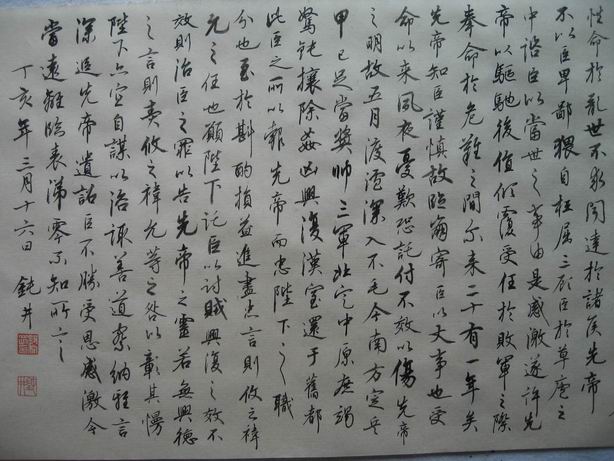 性命於亂世不求聞達於諸侯先帝
不以臣卑鄙猥自枉屈三顧臣於草廬之
中諮臣以當世之事由是感激遂許先
帝以驅馳後值傾覆受任於敗軍之際
奉命於危難之間爾來二十有一年矣
先帝知臣謹慎故臨崩寄臣以大事也受
命以來夙夜憂歎恐託付不效以傷先帝
之明故五月渡瀘深入不毛今南方定兵
甲已足當獎帥三軍北定中原庶竭
駑鈍攘除姦凶興復漢室還于舊都
此臣之所以報先帝而忠陛下之職
分也至於斟酌損益進盡忠言則攸之褘
允之任也願陛下託臣以討賊興復之效不
效則治臣之罪以告先帝之靈若無興德
之言則責攸之褘允等之咎以彰其慢
陛下亦宜自謀以諮諏善道察納雅言
深追先帝遺詔臣不勝受恩感激今
當遠離臨表涕零不知所云
丁亥年三月十六日 鈍井